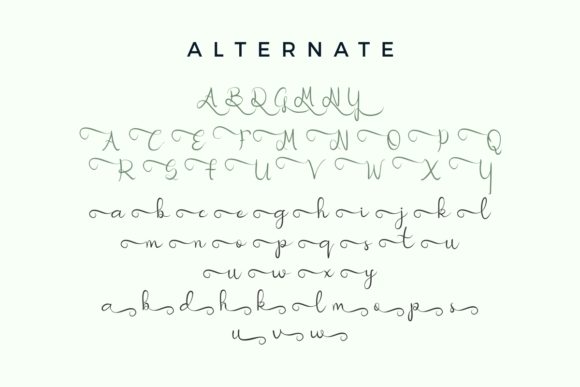 ALTERNATE
A B Q G M N Y
A C E F M N O P Q
R S F U V W X Y
a b c e g h i j k l
m n o p q s t u
u w x y
a b d h k l m o p s
u v w